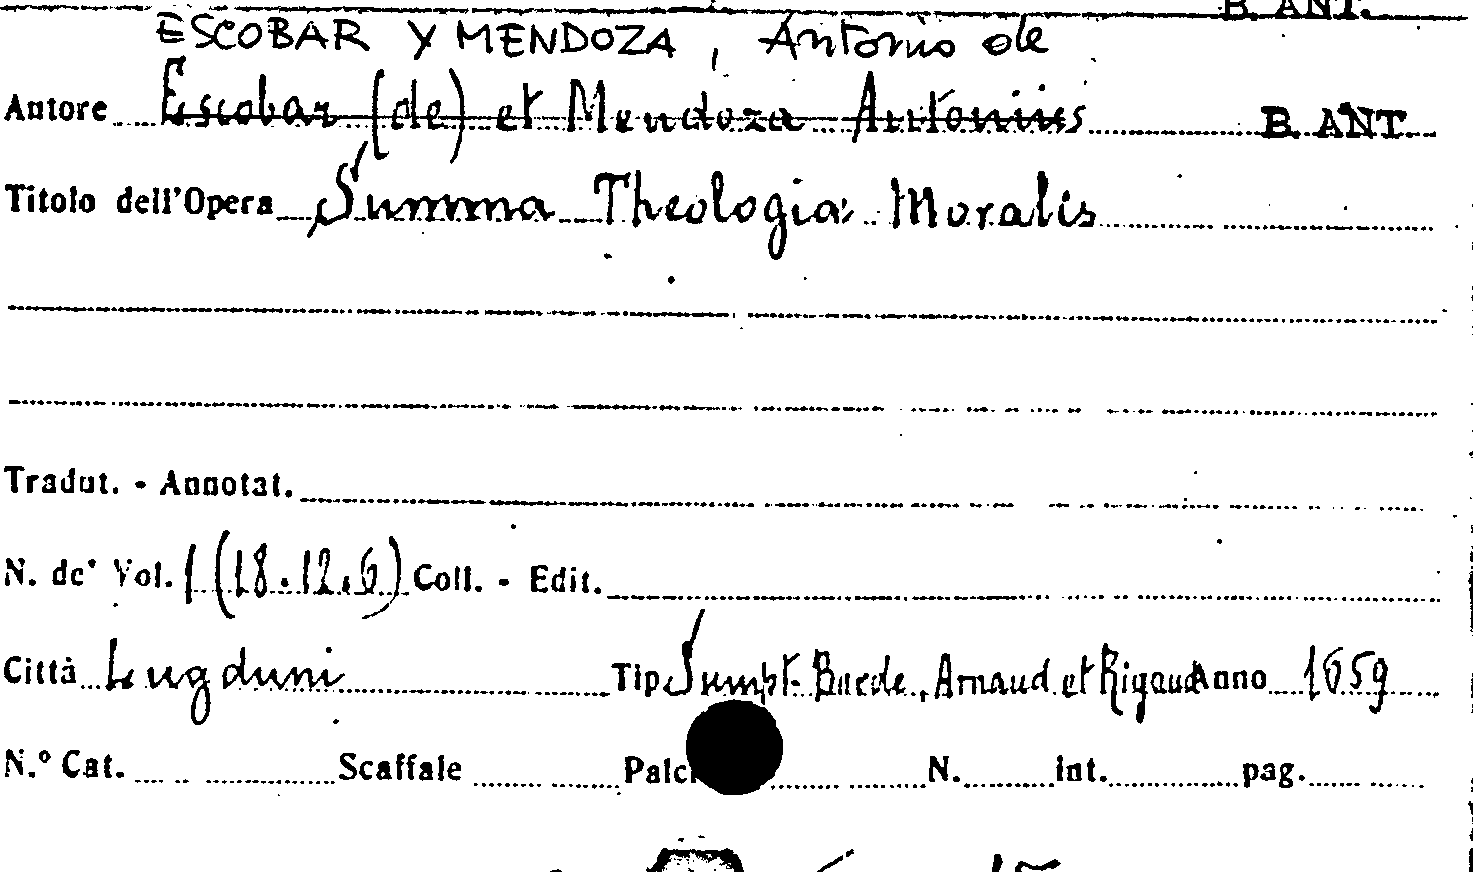 B. ANT.
ESCOBAR Y MENDOZA, Antonio de
Autore Escobar (de) et Mendoza Antonius B. ANT.
Titolo dell'Opera Summa Theologiæ Moralis
Tradut. - Annotat.
N. de' Vol. 1 (18.12.6) Coll. - Edit.
Città Lugduni Tip. Sumpt. Borde, Arnaud et Rigaud Anno 1659
N.º Cat. Scaffale Palch N. int. pag.